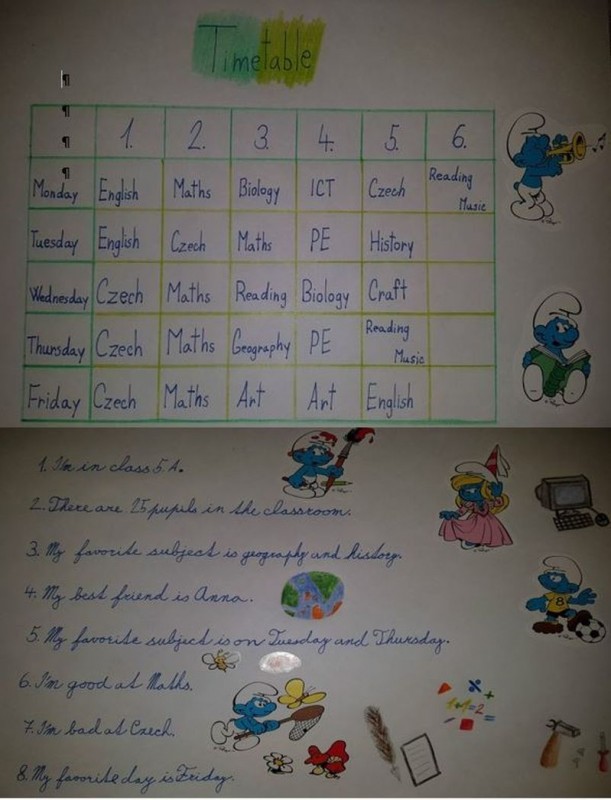 Timetable
1. 2. 3. 4. 5. 6.
Monday English Maths Biology ICT Czech Reading Music
Tuesday English Czech Maths PE History
Wednesday Czech Maths Reading Biology Craft
Thursday Czech Maths Geography PE Reading Music
Friday Czech Maths Art Art English
1. I'm in class 5. A.
2. There are 25 pupils in the classroom.
3. My favorite subject is geography and history.
4. My best friend is Anna.
5. My favorite subject is on Tuesday and Thursday.
6. I'm good at Maths.
7. I'm bad at Czech.
8. My favorite day is Friday.
8
1+1=2